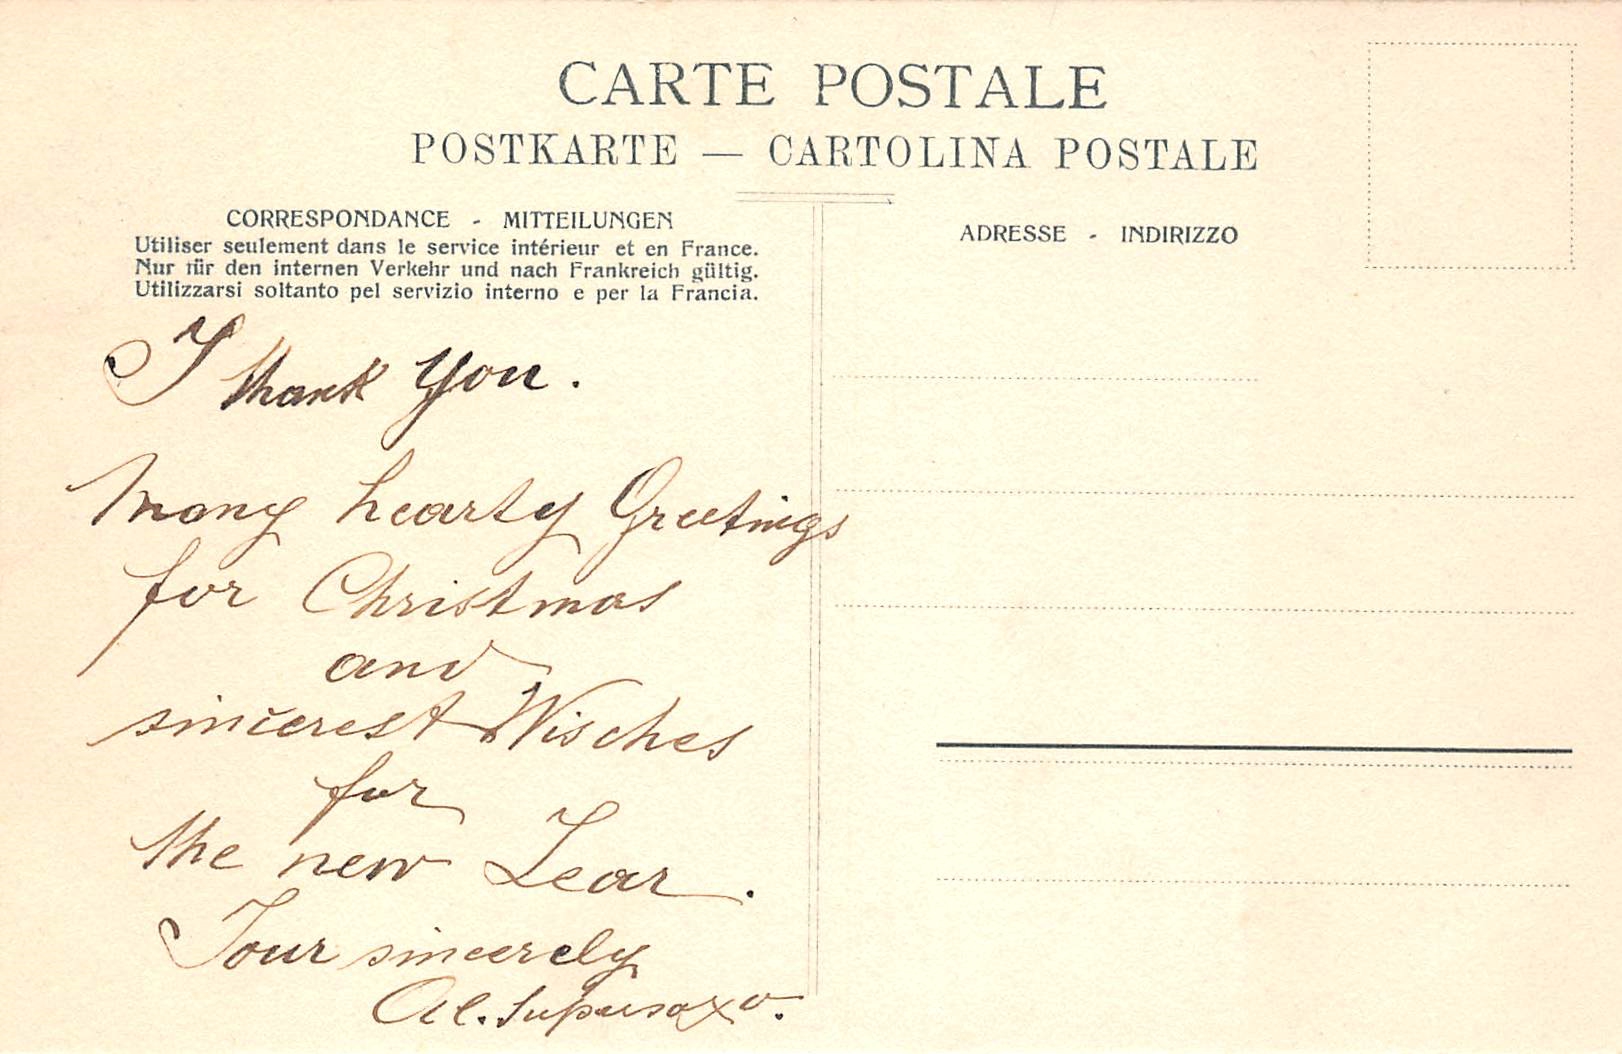 CARTE POSTALE
POSTKARTE — CARTOLINA POSTALE
CORRESPONDANCE - MITTEILUNGEN
Utiliser seulement dans le service intérieur et en France.
Nur für den internen Verkehr und nach Frankreich gültig.
Utilizzarsi soltanto pel servizio interno e per la Francia.
ADRESSE - INDIRIZZO
I thank you.
Many hearty Greetings
for Christmas
and
sincerest Wisches
for
the new Year.
Your sincerely
Al. Supersaxo.